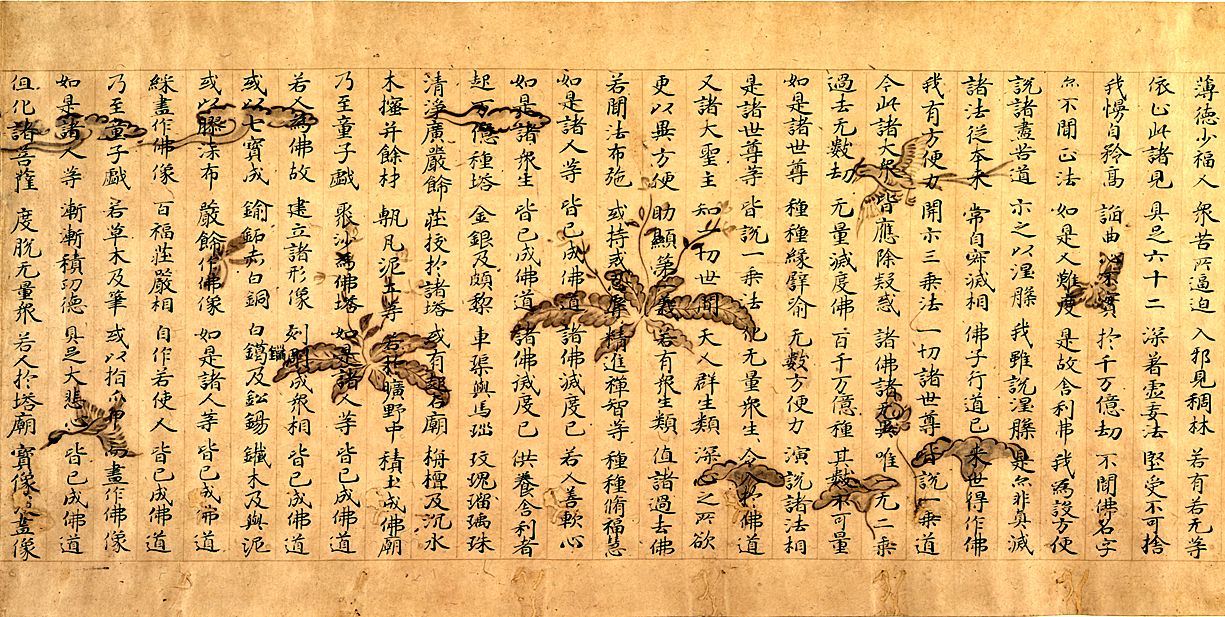 薄德少福人 衆苦所逼迫 入邪見稠林 若有若无等
依止此諸見 具足六十二 深著虛妄法 堅受不可捨
我慢自矜高 諂曲心不實 於千万億劫 不聞佛名字
亦不聞正法 如是人難度 是故舍利弗 我為設方便
說諸盡苦道 示之以涅槃 我雖說涅槃 是亦非真滅
諸法從本来 常自寂滅相 佛子行道已 来世得作佛
我有方便力 開示三乗法 一切諸世尊 皆說一乗道
今此諸大衆 皆應除疑惑 諸佛語无異 唯一无二乗
過去无數劫 无量滅度佛 百千万億種 其數不可量
如是諸世尊 種種緣譬喻 无數方便力 演說諸法相
是諸世尊等 皆說一乗法 化无量衆生 令入於佛道
又諸大聖主 知一切世間 天人群生類 深心之所欲
更以異方便 助顯第一義 若有衆生類 值諸過去佛
若聞法布施 或持戒忍辱 精進禪智等 種種脩福慧
如是諸人等 皆已成佛道 諸佛滅度已 若人善軟心
如是諸衆生 皆已成佛道 諸佛滅度已 供養舍利者
起万億種塔 金銀及頗黎 車渠與馬瑙 玫瑰瑠璃珠
清淨廣嚴飾 莊挍於諸塔 或有起石廟 栴檀及沉水
木櫁并餘材 塼瓦泥土等 若於曠野中 積土成佛廟
乃至童子戲 聚沙為佛塔 如是諸人等 皆已成佛道
若人為佛故 建立諸形像 刻彫成衆相 皆已成佛道
或以七寶成 鍮鉐赤白銅 白鑞及鈆錫 鐵木及與泥
或以膠漆布 嚴飾作佛像 如是諸人等 皆已成佛道
綵畫作佛像 百福莊嚴相 自作若使人 皆已成佛道
乃至童子戲 若草木及筆 或以指爪甲 而畫作佛像
如是諸人等 漸漸積功德 具足大悲心 皆已成佛道
但化諸菩薩 度脫无量衆 若人於塔廟 寶像及畫像